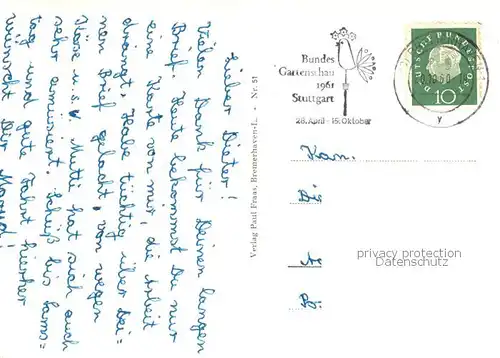 Lieber Dieter!
Vielen Dank für Deinen langen
Brief. Heute bekommst Du nur
eine Karte von mir, die Arbeit
drängt. Habe tüchtig über Dei-
nen Brief gelacht, von wegen
Käse u.s.w. Mutti hat sich auch
sehr amüsiert. Tschüß bis Sams-
tag und gute Fahrt hierher
wünscht Dir
Verlag Paul Fraas, Bremerhaven-L. - Nr. 51
Bundes
Gartenschau
1961
Stuttgart
28. April - 15. Oktober
DEUTSCHE BUNDESPOST
10
y
Kan.
privacy protection
Datenschutz